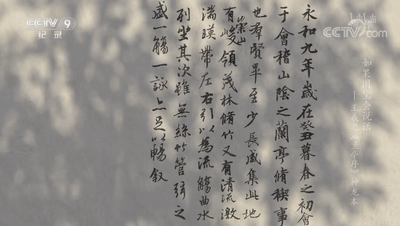 CCTV 9
纪录
CCTV.com
如果国宝会说话
永和九年歲在癸丑暮春之初會
于會稽山陰之蘭亭脩稧事
也羣賢畢至少長咸集此地
有崇山峻領茂林脩竹又有清流激
湍暎帶左右引以為流觴曲水
列坐其次雖無絲竹管弦之
盛一觴一詠亦足以暢敘